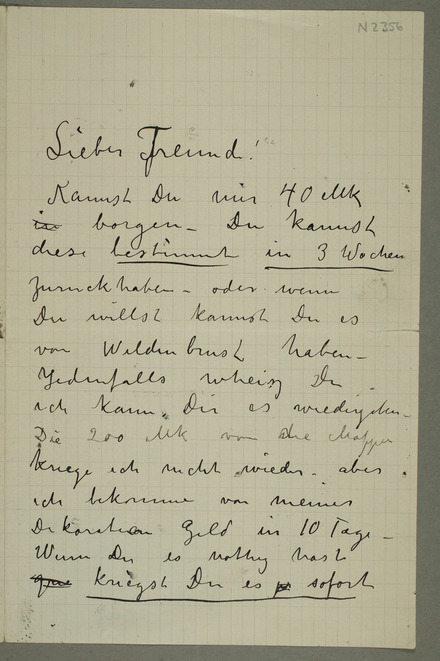 N 2356
Lieber Freund!
Kannst Du mir 40 Mk
borgen – Du kannst
diese bestimmt in 3 Wochen
zuruckhaben – oder wenn
Du willst kannst Du es
von Wildenbrust haben –
Jedenfalls wheisz Du
ich kann Dir es wiedergeben –
Die 200 Mk von die Mappen
kriege ich nicht wieder – aber
ich bekomme von meiner
Dekoration Geld in 10 Tage –
Wenn Du es nothig hast
kriegst Du es sofort